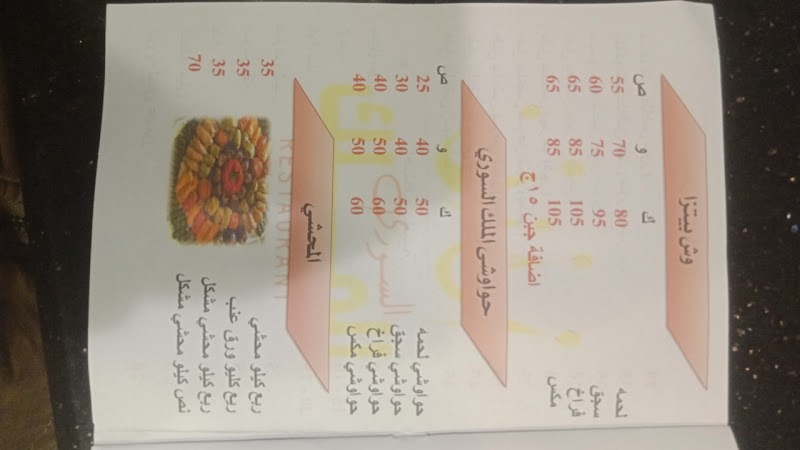 وش بيتزا
ص و ك
لحمه 55 70 80
سجق 60 75 95
فراخ 65 85 105
مكس 65 85 105
اضافة جبن ١٥ج
حواوشى الملك السوري
ص و ك
حواوشي لحمه 25 40 50
حواوشي سجق 30 40 50
حواوشي فراخ 40 50 60
حواوشي مكس 40 50 60
السوري
RESTAURANT
المحشي
ربع كيلو محشي 35
ربع كليو ورق عنب 35
ربع كيلو محشي مشكل 35
نص كيلو محشي مشكل 70